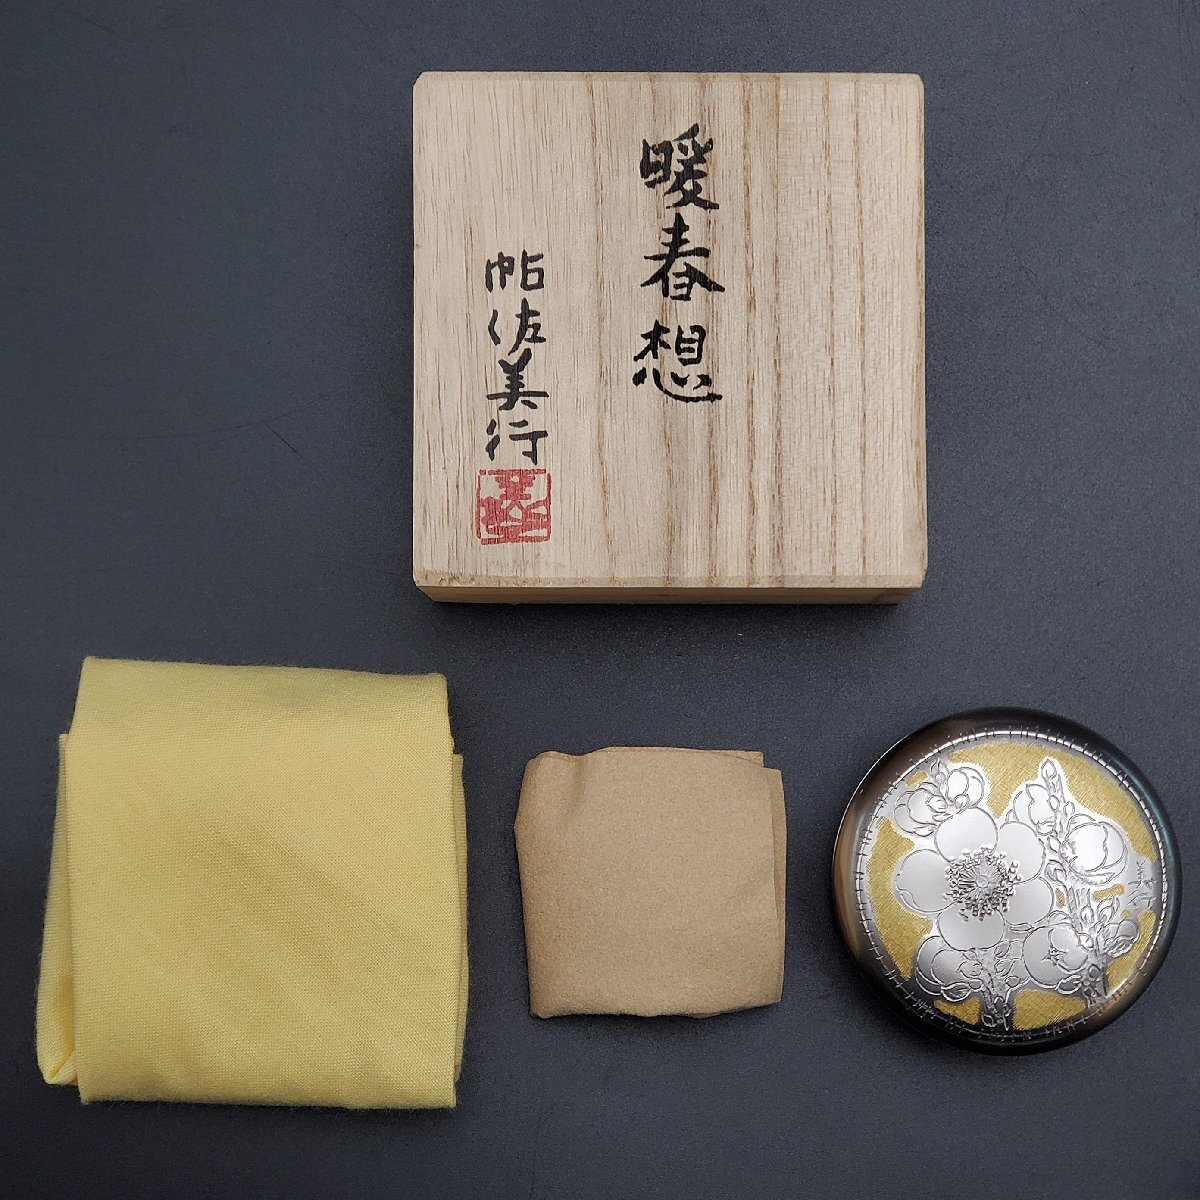 暖春想
帖佐美行
美